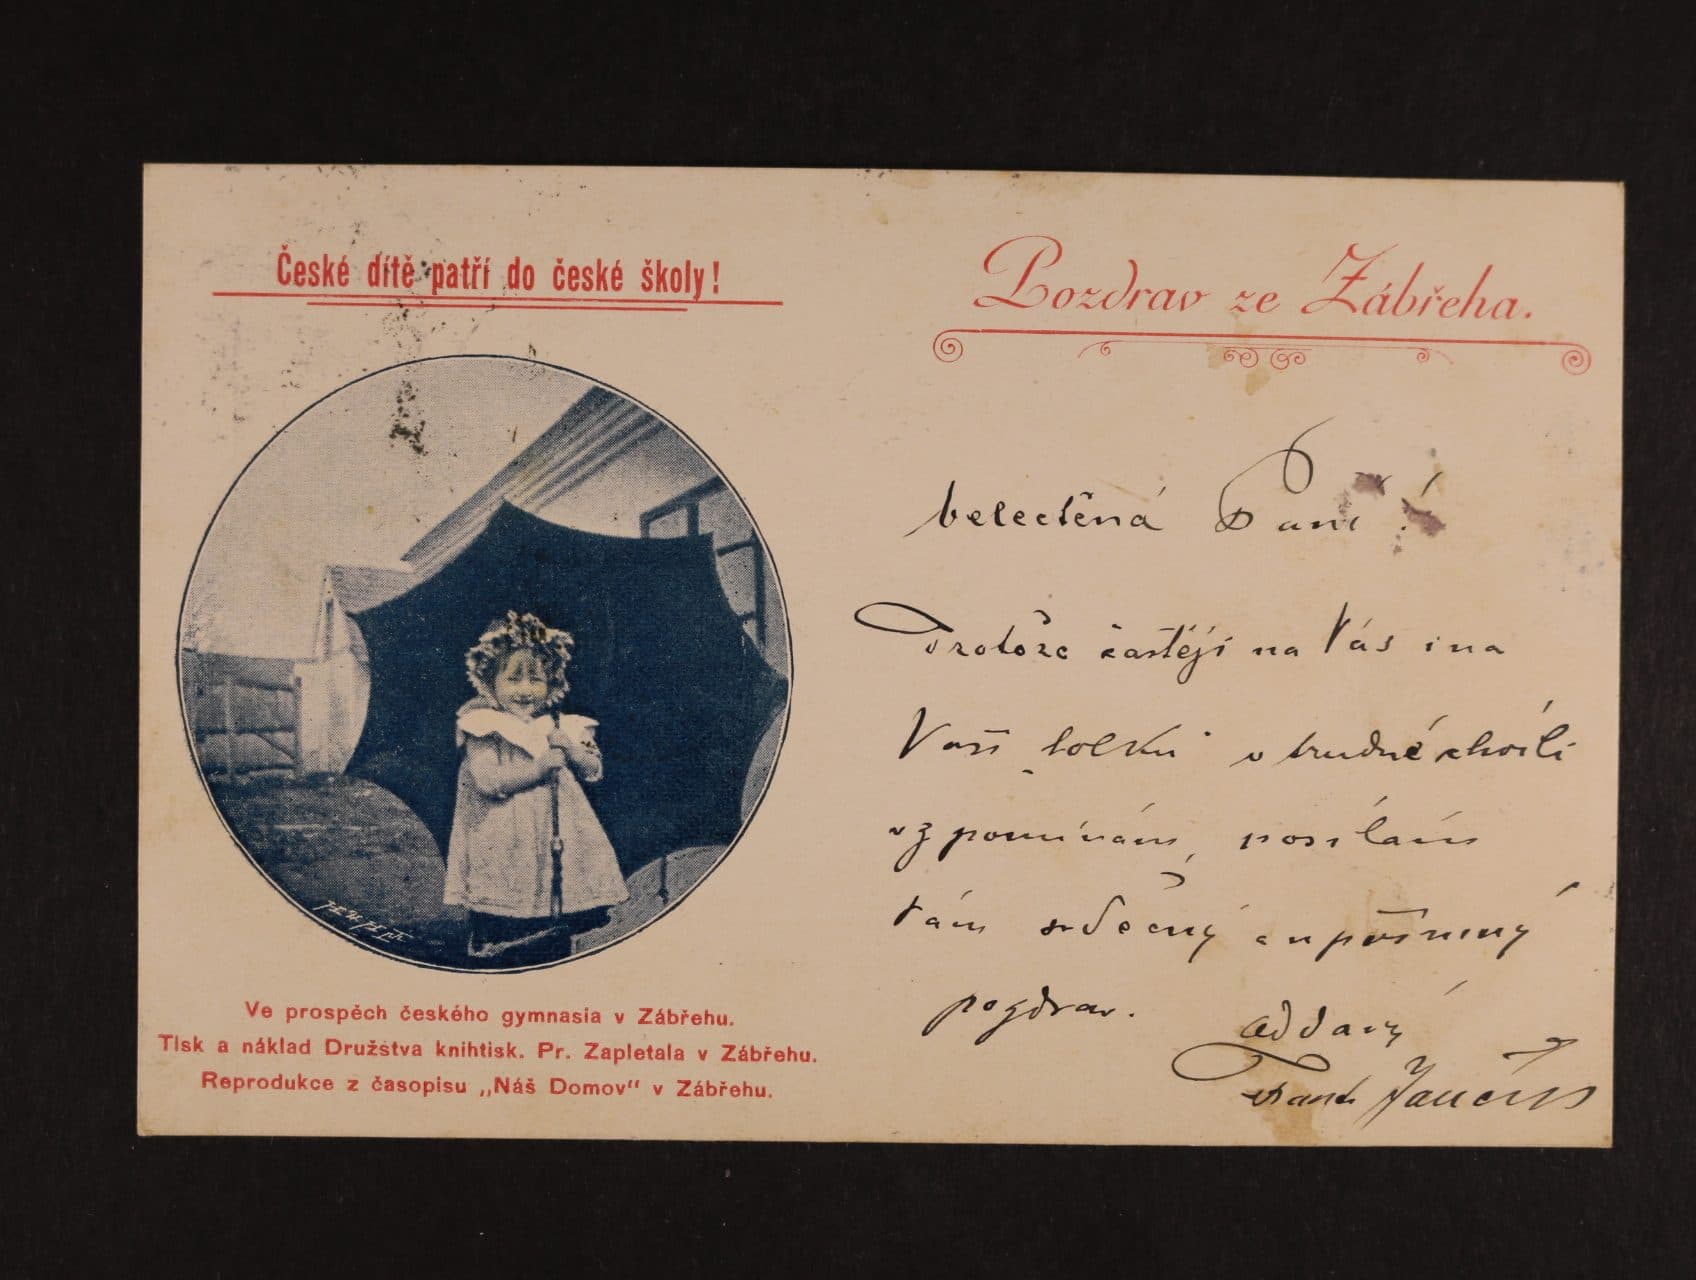 České dítě patří do české školy!
Pozdrav ze Zábřeha.
Velectěná Paní!
Protože častěji na Vás i na
Vaši v trudné chvíli
vzpomínám, posílám
Vám srdečný a upřímný
pozdrav.
oddaný
Frant. Jančík
Ve prospěch českého gymnasia v Zábřehu.
Tisk a náklad Družstva knihtisk. Pr. Zapletala v Zábřehu.
Reprodukce z časopisu „Náš Domov" v Zábřehu.